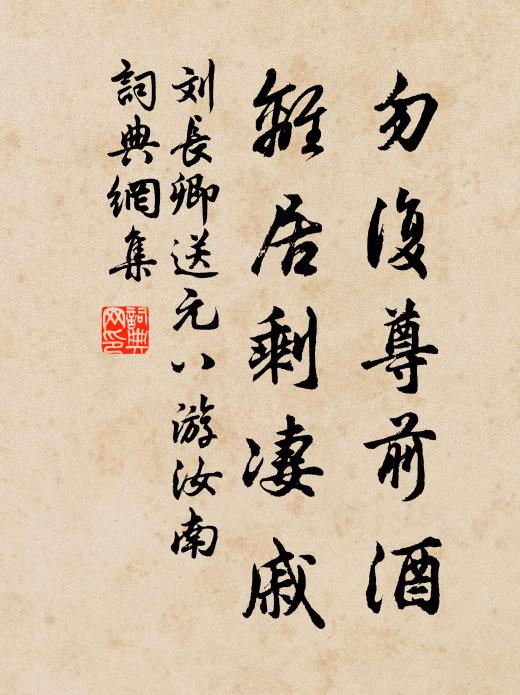 勿復尊前酒
離居剩淒戚
刘長卿送元八游汝南
詞典網集
詞典网印